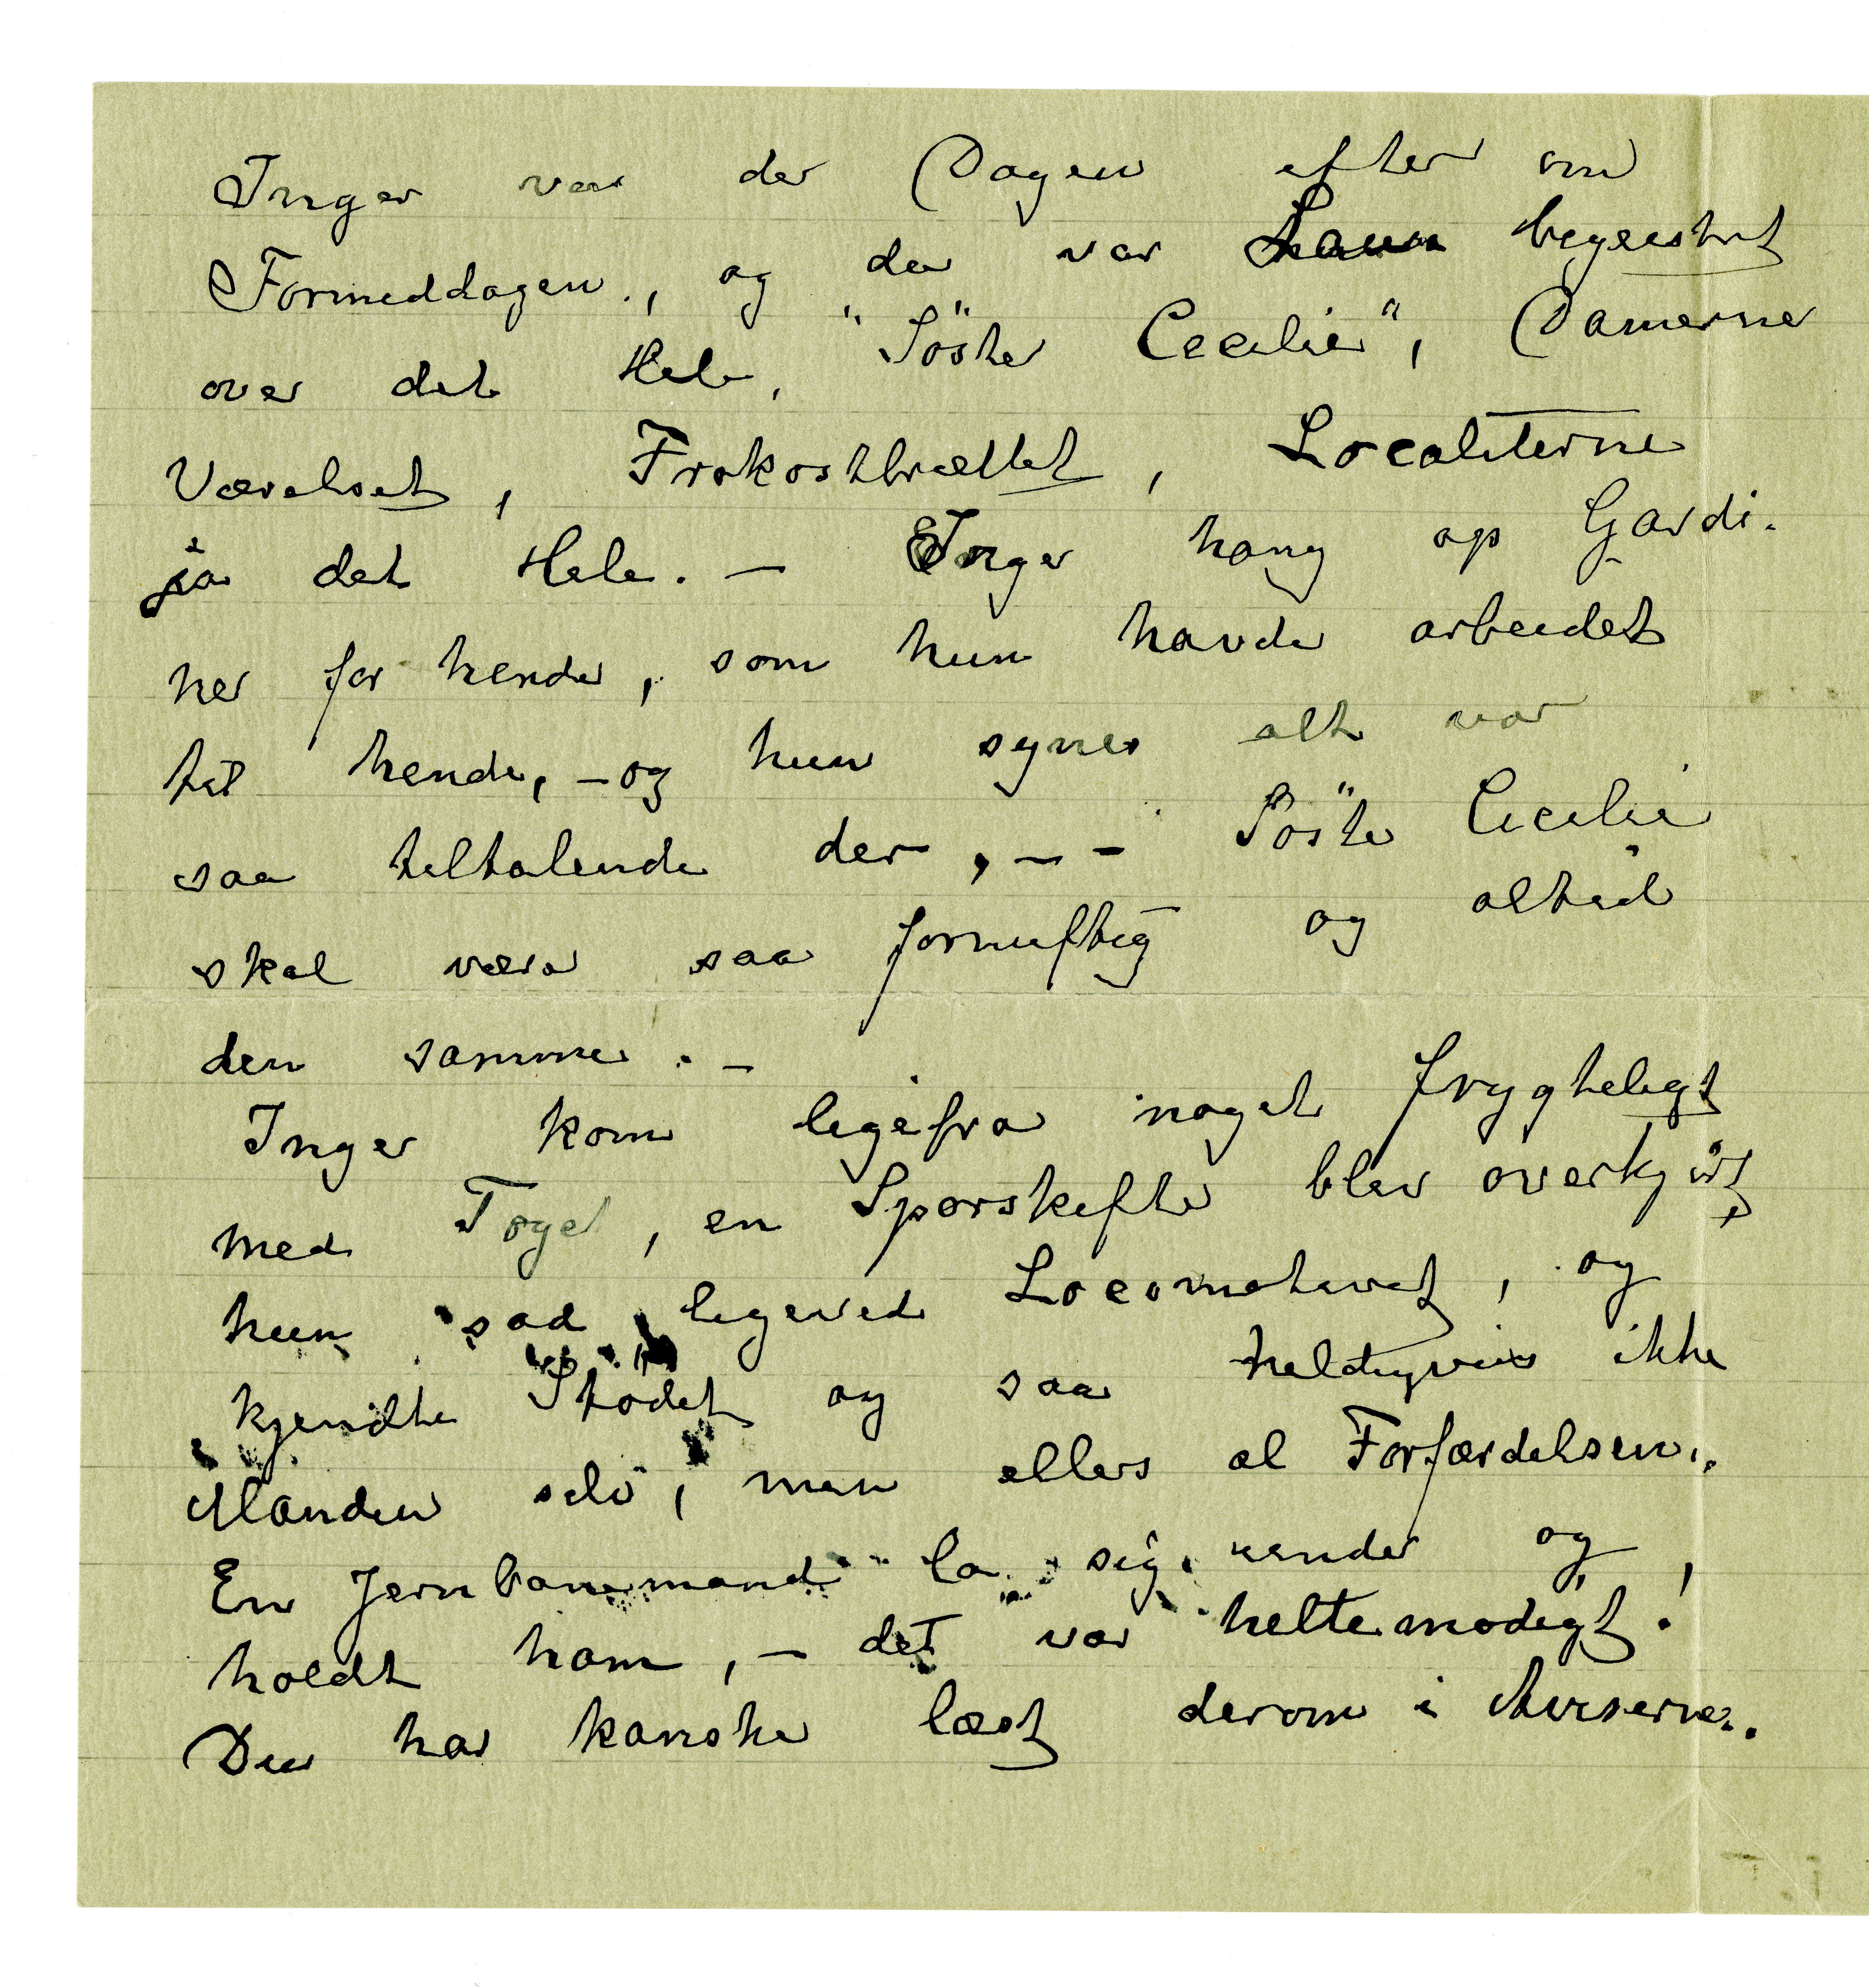 Inger var der Dagen efter om
Formeddagen, og der var Laura begeistret
over det Hele, "Söster Cecilie", Damerne
Værelset, Frokostbrættet, Localiterne
ja det Hele. — Inger hang op Gardi-
ner for hende, som hun havde arbeidet
til hende, – og hun synes alt var
saa tiltalende der, – – Söster Cecilie
skal være saa fornuftig og altid
den samme. –
Inger kom ligefra noget frygteligt
med Toget, en Sporskifter blev overkjört,
hun sad ligeved Locomotivet, og
kjendte Stödet og saa heldigvis ikke
Manden selv, men ellers al Forfærdelsen.
En Jernbanemand la sig under og
holdt ham, – det var heltemodigt!
Du har kanske læst derom i Aviserne.